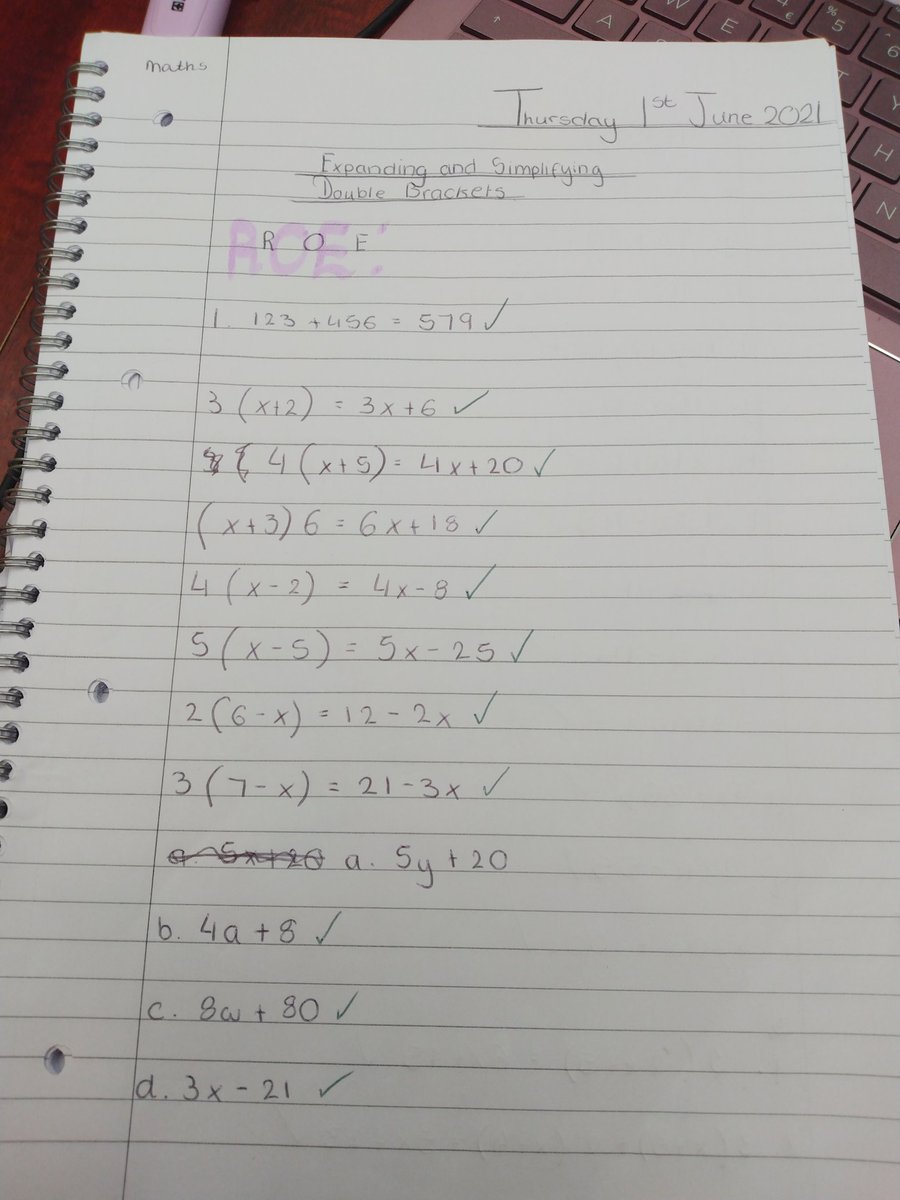 maths
Thursday 1st June 2021
Expanding and Simplifying
Double Brackets
R O E
1. 123 + 456 = 579 ✓
3 (x+2) = 3x+6 ✓
4 (x+5) = 4x+20 ✓
(x+3) 6 = 6x+18 ✓
4 (x-2) = 4x-8 ✓
5 (x-5) = 5x-25 ✓
2 (6-x) = 12-2x ✓
3 (7-x) = 21-3x ✓
a. 5x+20 a. 5y+20
b. 4a+8 ✓
c. 8w+80 ✓
d. 3x-21 ✓